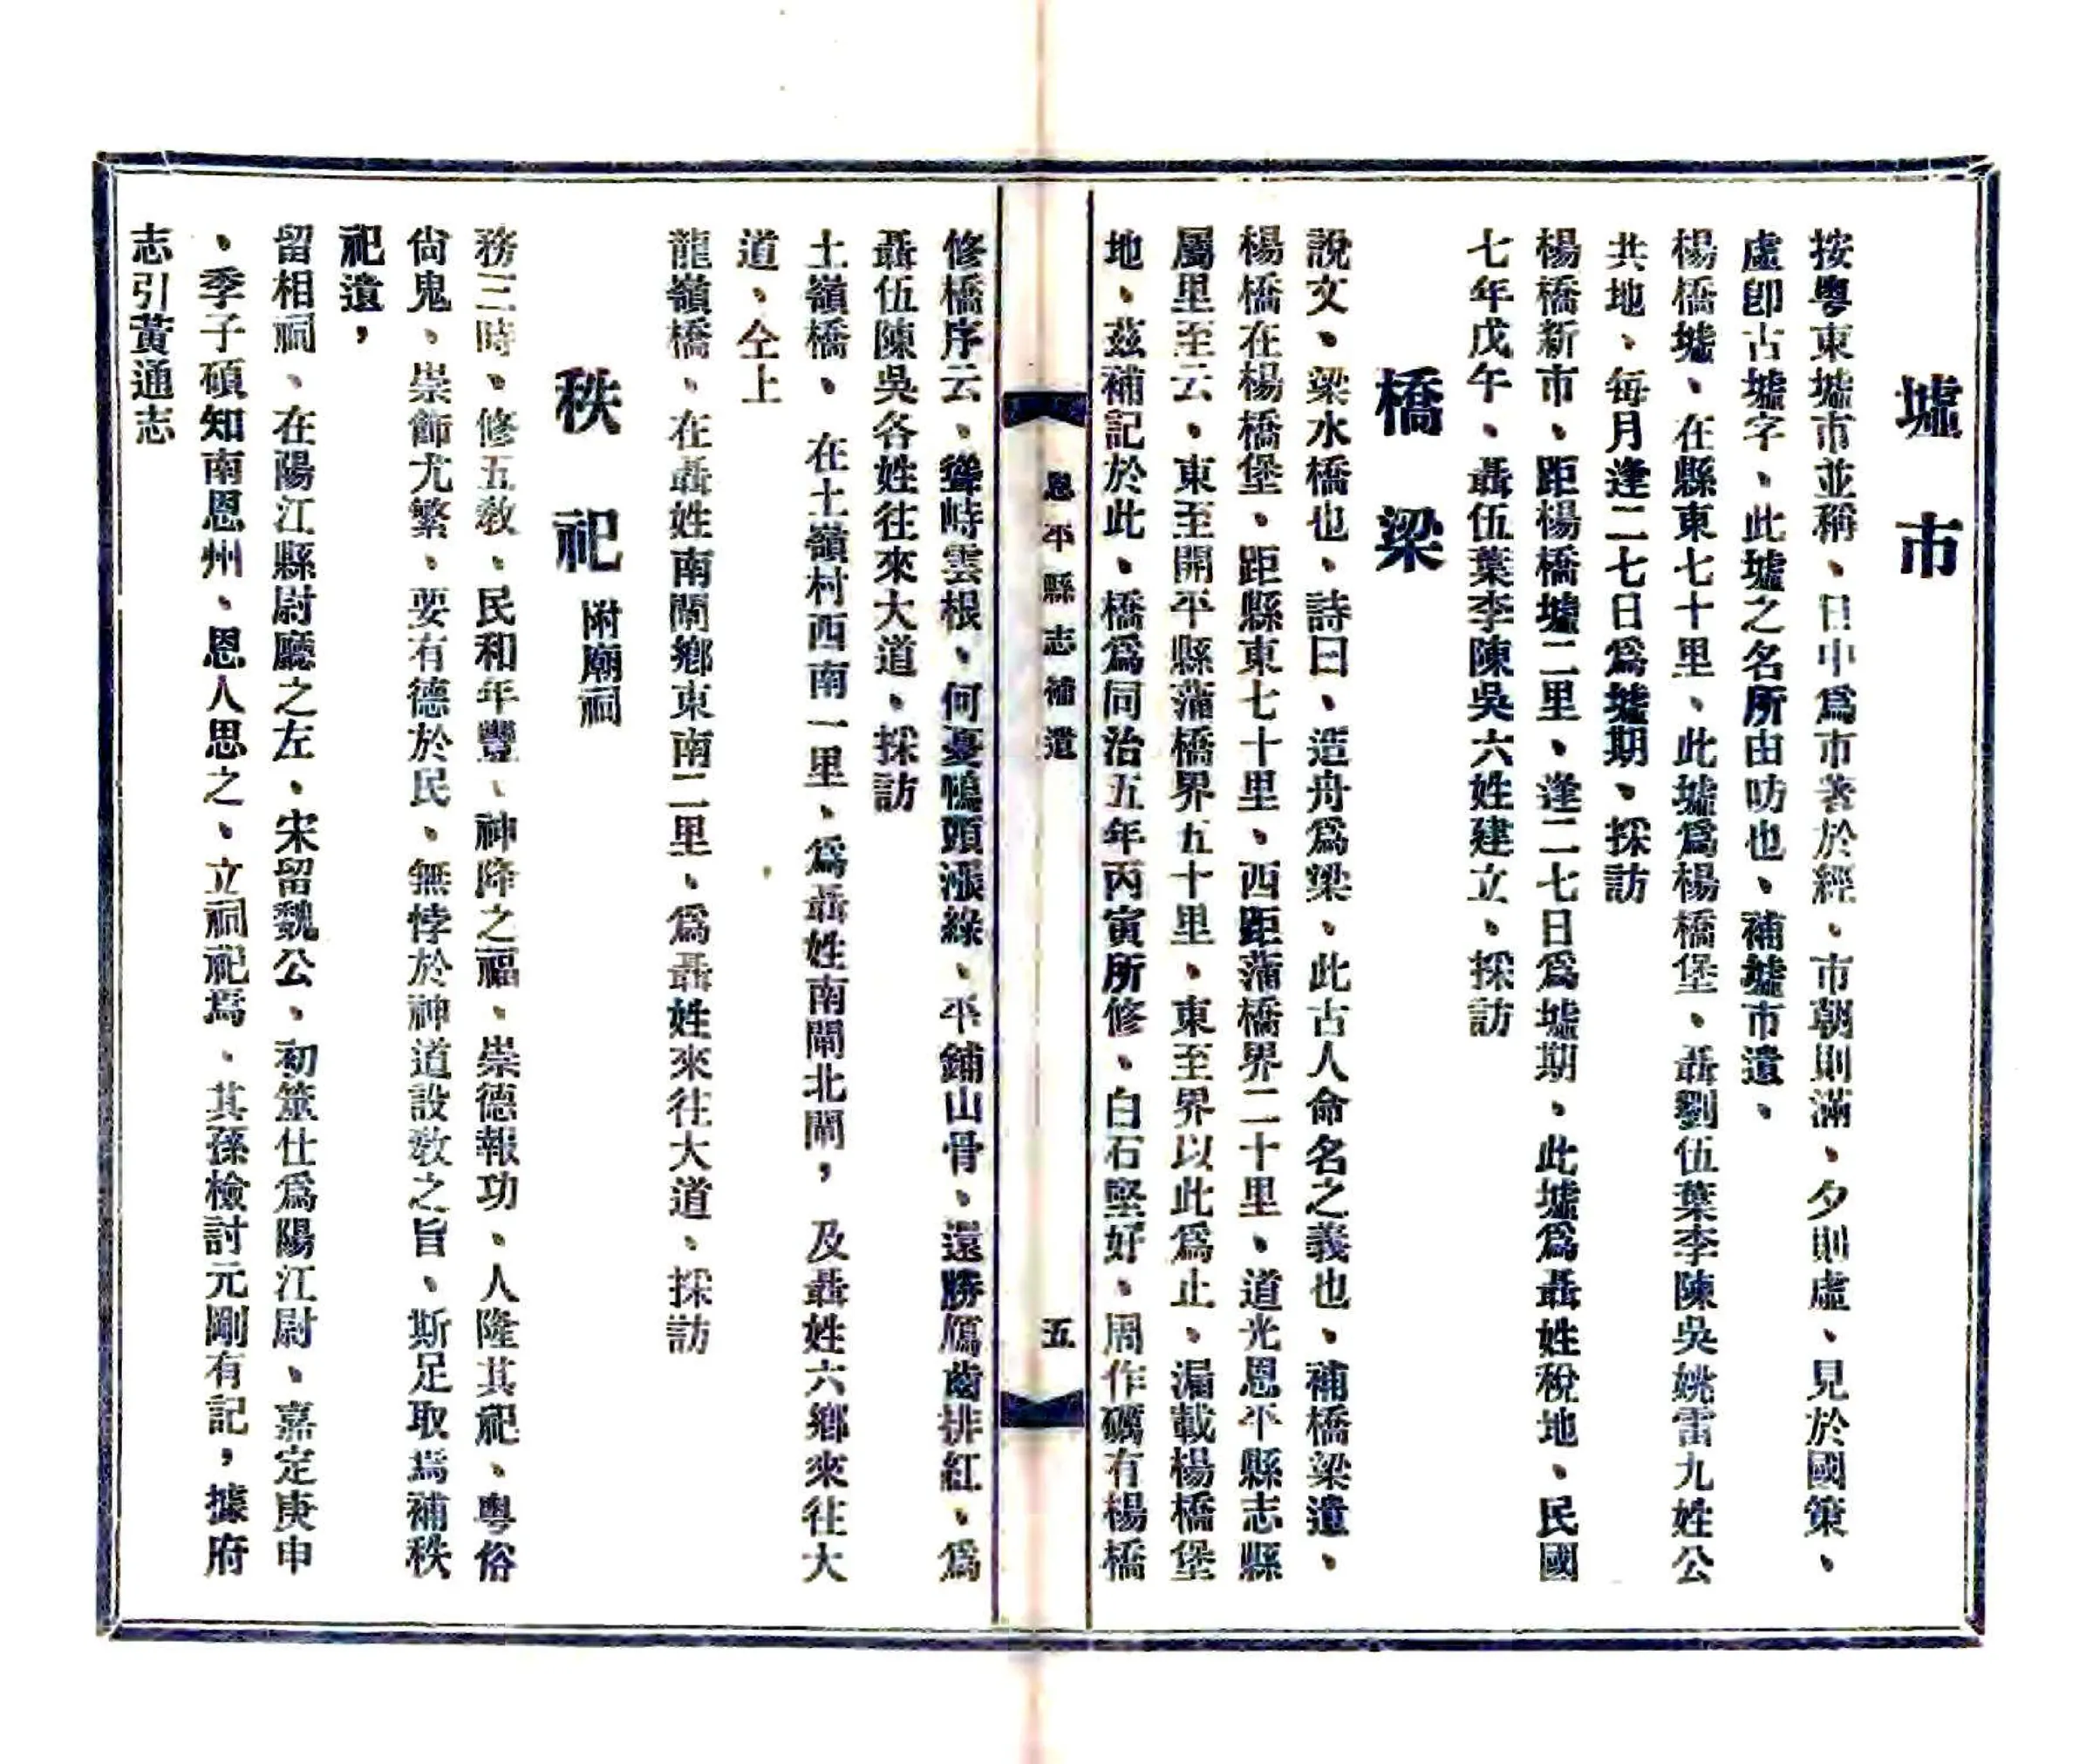 墟市
按粤東墟市並稱、日中爲市著於經、市朝則滿、夕則虛、見於國策、
虛卽古墟字、此墟之名所由昉也、補墟市遺、
楊橋墟、在縣東七十里、此墟爲楊橋堡、聶劉伍葉李陳吳姚雷九姓公
共地、每月逢二七日爲墟期、採訪
楊橋新市、距楊橋墟二里、逢二七日爲墟期、此墟爲聶姓稅地、民國
七年戊午、聶伍葉李陳吳六姓建立、採訪
橋梁
說文、梁水橋也、詩曰、造舟爲梁、此古人命名之義也、補橋梁遺、
楊橋在楊橋堡、距縣東七十里、西距蒲橋界二十里、道光恩平縣志縣
屬里至云、東至開平縣蒲橋界五十里、東至界以此爲止、漏載楊橋堡
地、茲補記於此、橋爲同治五年丙寅所修、白石堅好、周作礪有楊橋
恩平縣志補遺
五
修橋序云、聳峙雲根、何憂鴨頭漲綠、平鋪山骨、還勝鴈齒排紅、爲
聶伍陳吳各姓往來大道、採訪
土嶺橋、在土嶺村西南一里、爲聶姓南閘北閘，及聶姓六鄉來往大
道、仝上
龍嶺橋、在聶姓南閘鄉東南二里、爲聶姓來往大道、採訪
秩祀 附廟祠
務三時、修五敎、民和年豐、神降之福、崇德報功、人隆其祀、粤俗
尙鬼、崇飾尤繁、要有德於民、無悖於神道設敎之旨、斯足取焉補秩
祀遺，
留相祠、在陽江縣尉廳之左、宋留魏公、初筮仕爲陽江尉、嘉定庚申
、季子碩知南恩州、恩人思之、立祠祀焉、其孫檢討元剛有記，據府
志引黃通志